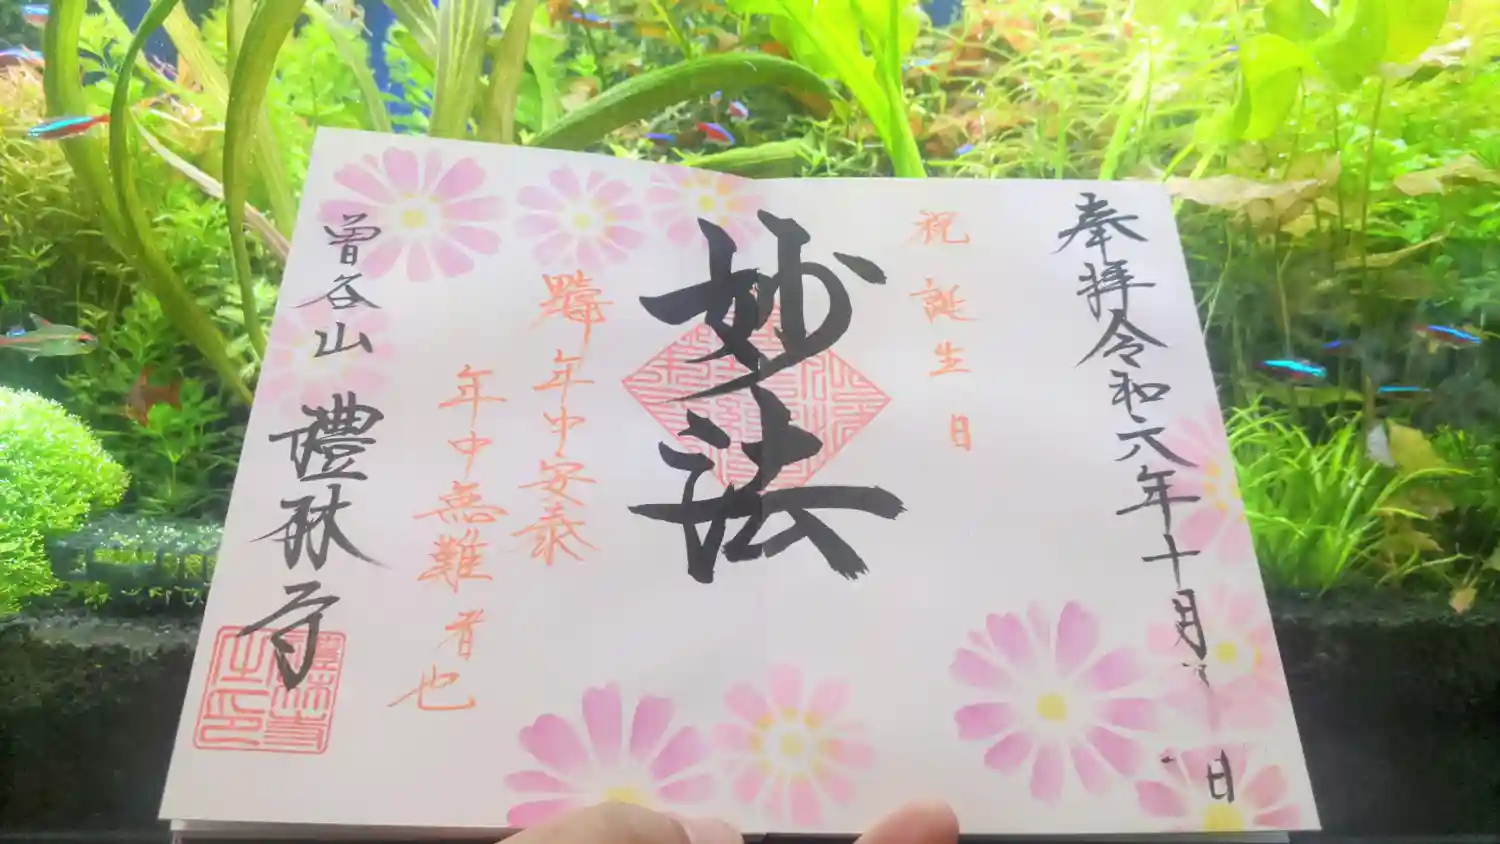 奉拝令和六年十月 日
祝誕生日
妙法
年中安泰
年中無難者也
曽谷山 禮林寺